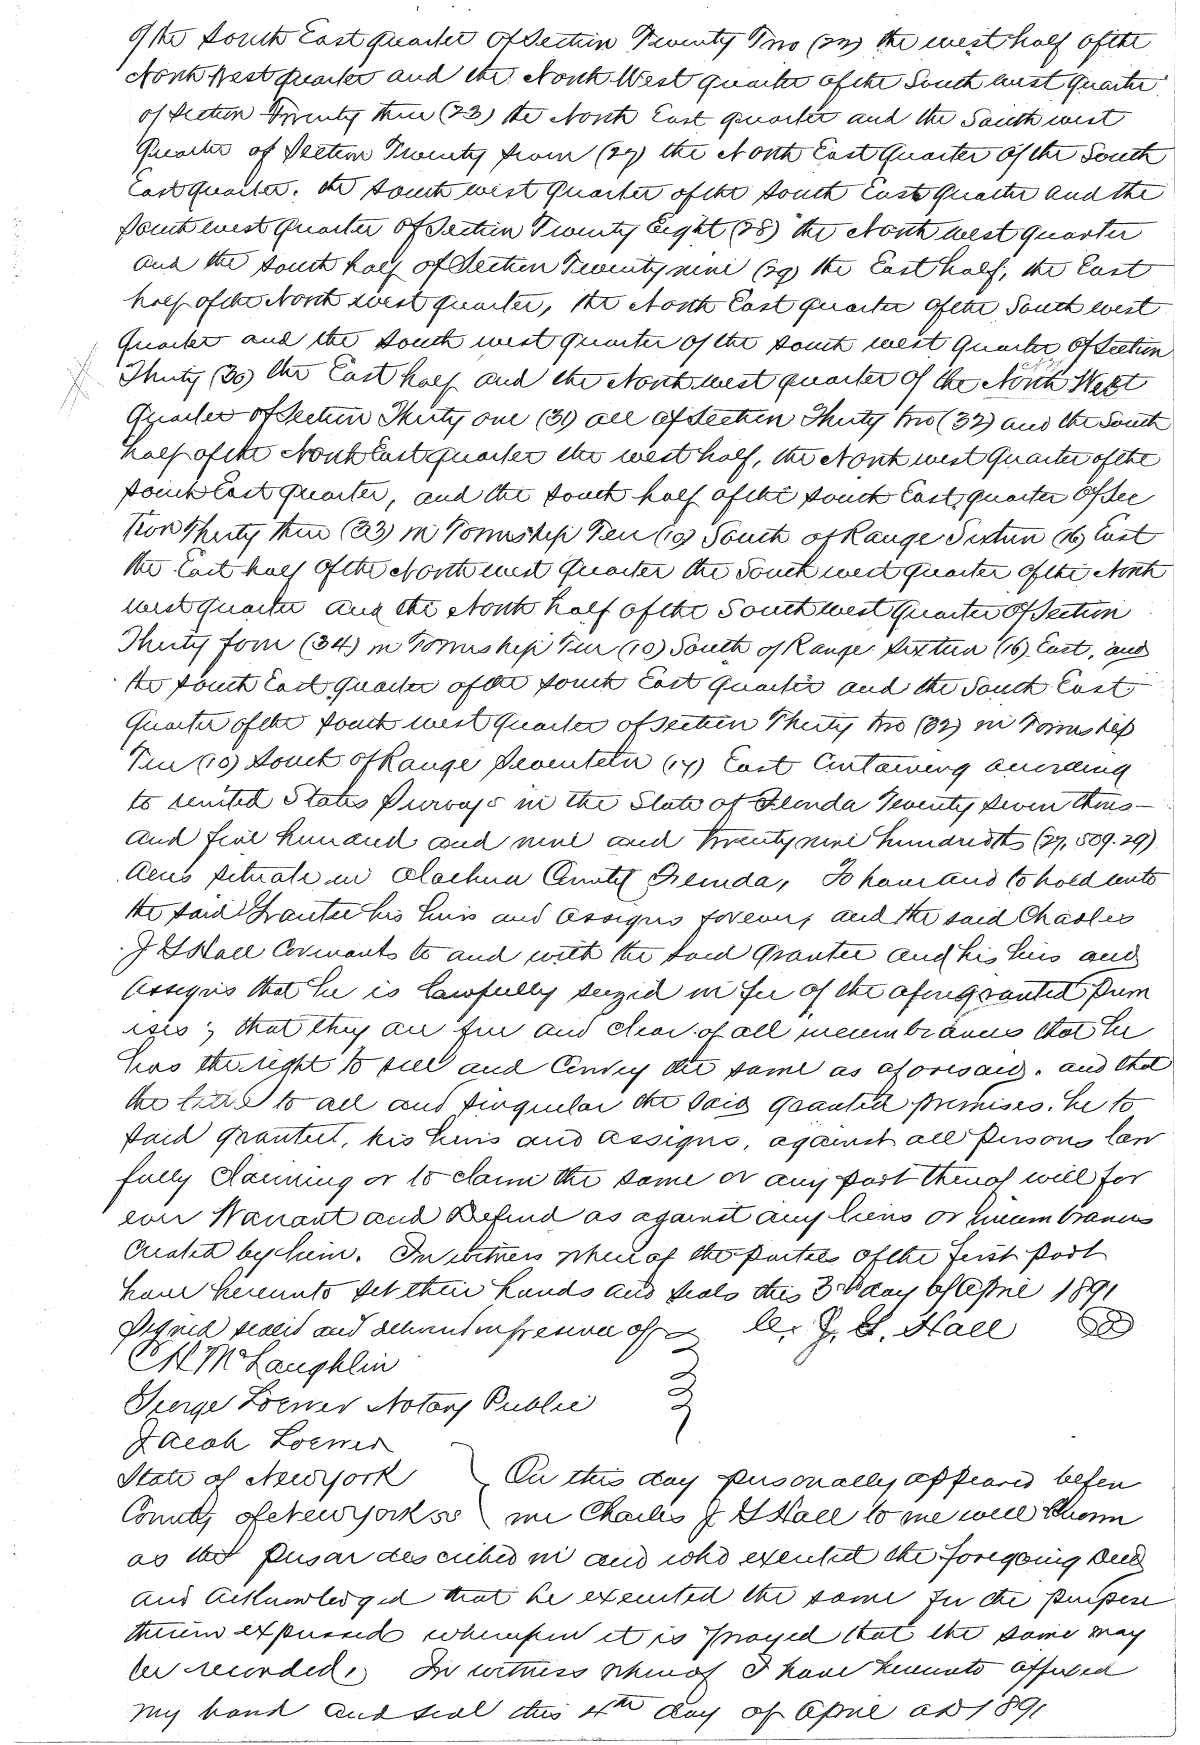 of the South East quarter of Section Twenty Two (22) the west half of the
North West quarter and the North West quarter of the South west quarter
of Section Twenty three (23) the North East quarter and the South west
Quarter of Section Twenty seven (27) the North East Quarter of the South
East quarter. the South west quarter of the South East Quarter and the
South west quarter of Section Twenty Eight (28) the North west quarter
and the South half of Section Twenty nine (29) the East half, the East
half of the North west quarter, the North East quarter of the South west
Quarter and the South west quarter of the South west Quarter of Section
Thirty (30) the East half and the North west quarter of the North West
Quarter of Section Thirty one (31) all of Section Thirty two (32) and the South
half of the North East quarter the west half, the North west Quarter of the
South East quarter, and the South half of the South East quarter of Sec
tion Thirty three (33) in Township Ten (10) South of Range Sixteen (16) East
the East half of the North west Quarter the South west quarter of the North
west quarter and the North half of the South west Quarter of Section
Thirty four (34) in Township Ten (10) South of Range Sixteen (16) East, and
the South East quarter of the South East Quarter and the South East
Quarter of the South west Quarter of Section Thirty two (32) in Township
Ten (10) South of Range Seventeen (17) East Containing according
to United States Surveys in the State of Florida Twenty seven thous-
and five hundred and nine and twenty nine hundredths (27,509.29)
acres situate in Alachua County Florida, To have and to hold unto
the said Grantee his heirs and assigns forever, and the said Charles
J G Hall Covenants to and with the said Grantee and his heirs and
Assigns that he is lawfully seized in fee of the aforegranted Prem
ises; that they are free and clear of all incumbrances that he
has the right to sell and Convey the same as aforesaid. and that
the title to all and singular the said granted premises. he to
said grantee, his heirs and assigns, against all persons law
fully Claiming or to claim the same or any part thereof will for
ever Warrant and Defend as against any liens or incumbrances
Created by him. In witness whereof the parties of the first part
have hereunto set their hands and seals this 3rd day of April 1891
Signed sealed and delivered in presence of C. J. G. Hall
C H McLaughlin
George Loewer Notary Public
Jacob Loewer
State of New York On this day personally appeared before
County of New York ss me Charles J G Hall to me well known
as the person described in and who executed the foregoing Deed
and acknowledged that he executed the same for the purpose
therein expressed whereupon it is prayed that the same may
be recorded. In witness whereof I have hereunto affixed
my hand and seal this 4th day of April AD 1891